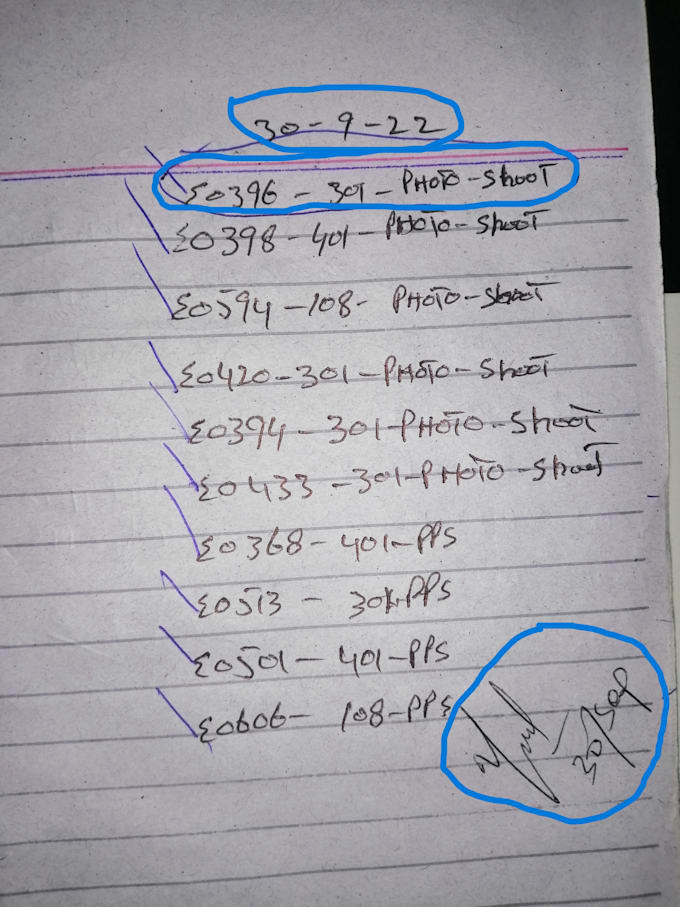 30-9-22
E0396 - 301 - PHOTO-Shoot
E0398-401-PHOTO-Shoot
E0594-108- PHOTO-Shoot
E0420-301-PHOTO-Shoot
E0394-301-PHOTO-Shoot
E0433-301-PHOTO-Shoot
E0368-401-PPS
E0513 - 301-PPS
E0501-401-PPS
E0606- 108-PPS
30/Sep